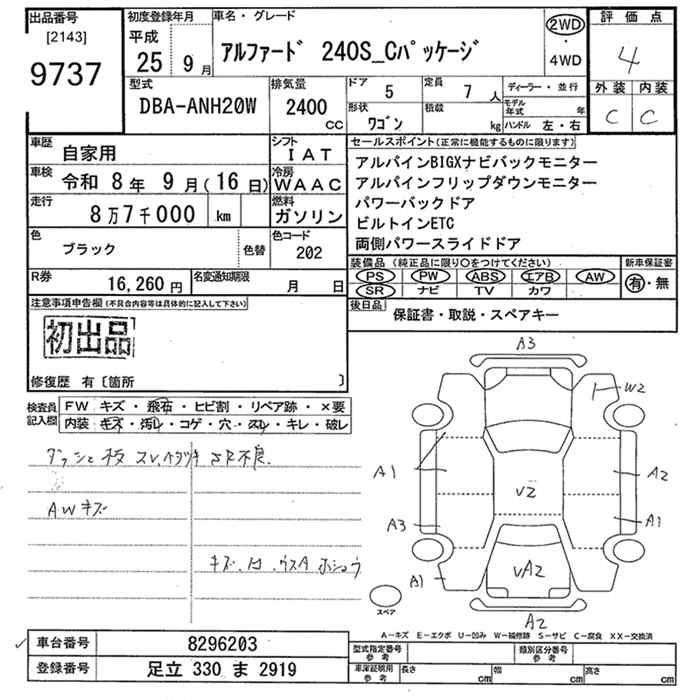 出品番号
[2143]
9737
初度登録年月
平成
25 9月
車名・グレード
アルファード 240S_Cパッケージ
2WD
・
4WD
評価点
4
外装 内装
C C
型式
DBA-ANH20W
排気量
2400
CC
ドア
5
定員
7 人
形状
ワゴン
積載
kg
ディーラー・並行
モデル年式 年
ハンドル 左・右
車歴
自家用
シフト
IAT
車検
令和 8年 9月(16日)
冷房
WAAC
走行
8万7千000 km
燃料
ガソリン
色
ブラック
色替
色コード
202
R券
16,260円
名変通知期限
月 日
セールスポイント(正常に機能するものに限ります)
アルパインBIGXナビバックモニター
アルパインフリップダウンモニター
パワーバックドア
ビルトインETC
両側パワースライドドア
装備品(純正品に限り○をつけてください)
PS PW ABS エアB AW
SR ナビ TV カワ
新車保証書
有・無
後日品
保証書・取説・スペアキー
注意事項申告欄(不具合内容等は具体的に記入して下さい)
初出品
修復歴 有〔箇所 〕
検査員記入欄
FW キズ・飛石・ヒビ割・リペア跡・×要
内装・キズ・汚レ・コゲ・穴・スレ・キレ・破レ
AWキズ
A3
W2
A1
A2
V2
A3
A1
A1
VA2
A2
スペア
A―キズ E―エクボ U―凹み W―補修跡 S―サビ C―腐食 XX―交換済
車台番号
8296203
登録番号
足立 330 ま 2919
型式指定番号
参考
類別区分番号
参考
車庫証明用
参考
長さ cm
幅 cm
高さ cm